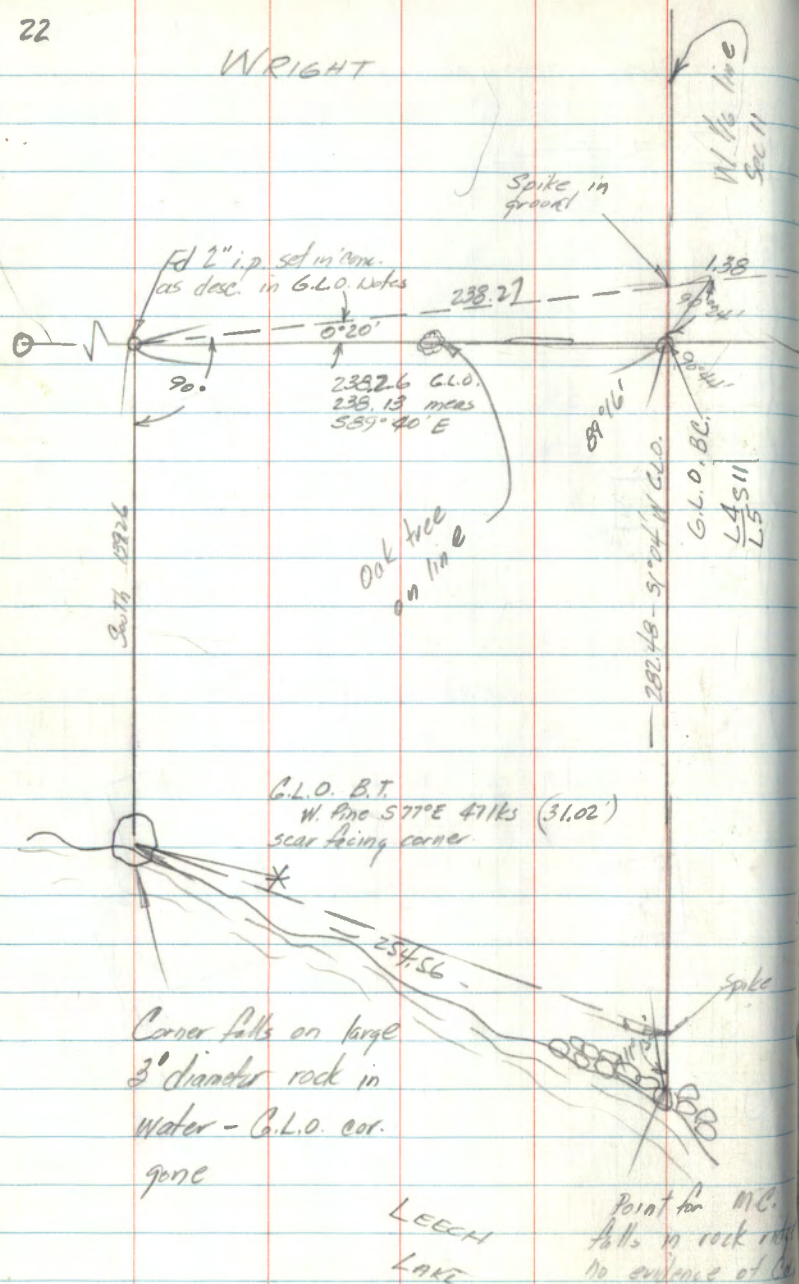 22
WRIGHT
W. 1/16 line
Sec 11
Spike in
ground
Fd 2" i.p. set in conc.
as desc. in G.L.O. Notes
1.38
238.27
0°20'
90°
238.26 G.L.O.
238.13 meas
S89°40'E
90°44'
89°16'
G.L.O. B.C.
L4 S11
L5
Oak tree
on line
South 159.26
282.48 - S1°04'W G.L.O.
G.L.O. B.T.
W. Pine S77°E 47lks (31.02')
scar facing corner
254.56
Spike
Corner falls on large
3' diameter rock in
water - G.L.O. cor.
gone
LEECH
LAKE
Point for M.C.
falls in rock
no evidence of